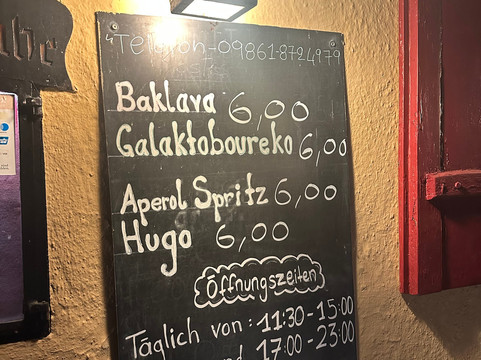 Telefon-09861-8724979
Baklava 6,00
Galaktoboureko 6,00
Aperol Spritz 6,00
Hugo 6,00
Öffnungszeiten
Täglich von: 11:30-15:00
17:00-23:00